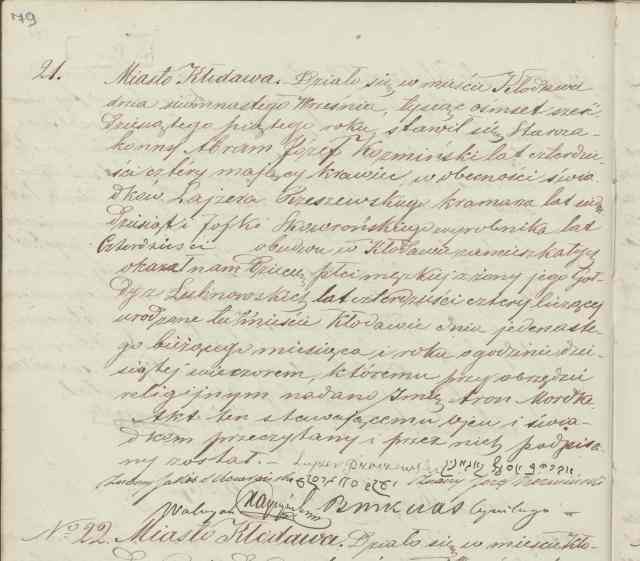 79
21. Miasto Kłodawa. Działo się w mieście Kłodawie
dnia siedmnastego Września, tysiąc ośmset sześć
dziesiątego piątego roku, stawił się Staroza-
konny Abram Józef Koźmiński lat czterdzie-
ści cztéry mający krawiec w obecności świa-
dków Lajzera Przeszewskiego kramarza lat
dziesiąt i Jofki wyrobnika lat
Czterdzieści obudwu w Kłodawie zamieszkałych
okazał nam Dziecię płci męzkiej z żony jego Gol-
dy z Lubnowskich lat czterdzieści cztery liczącej
urodzone tu w mieście Kłodawie dnia jedenaste-
go bieżącego miesiąca i roku o godzinie dzie-
siątej wieczorem, któremu przy obrzędzie
religijnym nadano Imię Aron Mordka.
Akt ten stawającemu ojcu i świa-
dkom przeczytany i przez nich podpisa-
ny został. –
Józef Koźmiński
Burmistrz Cywilnego
No 22. Miasto Kłodawa. Działo się w mieście Kło-